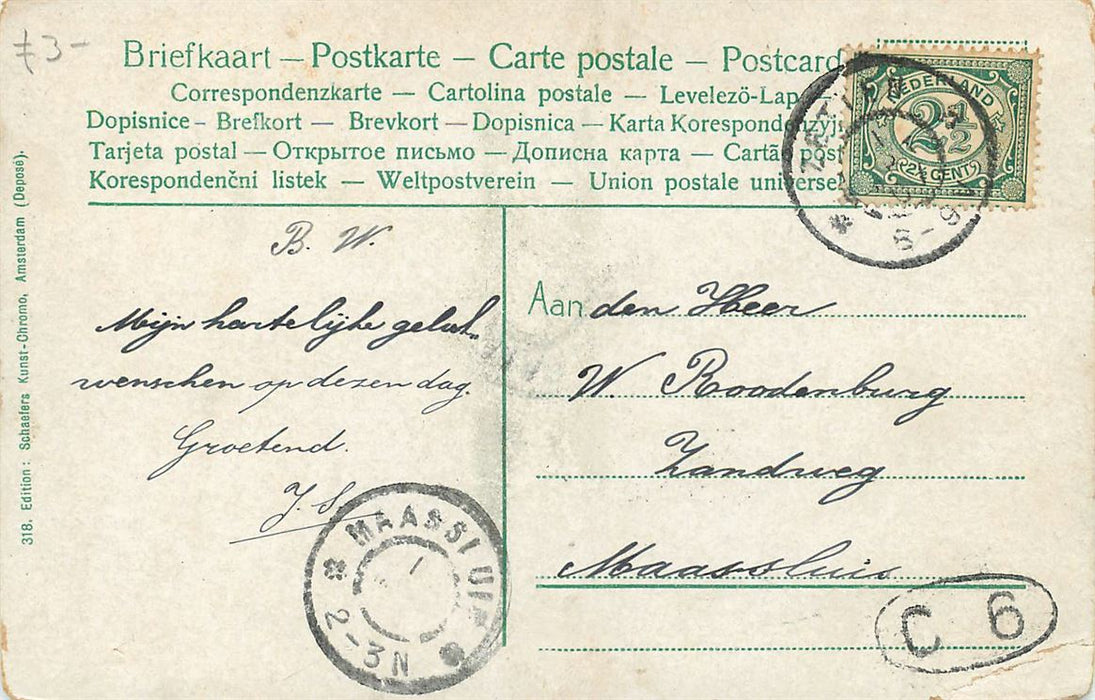 £3-
Briefkaart — Postkarte — Carte postale — Postcard
Correspondenzkarte — Cartolina postale — Levelező-Lap
Dopisnice - Brefkort — Brevkort — Dopisnica — Karta Korespondenzyjna
Tarjeta postal — Открытое письмо — Дописна карта — Cartão postal
Korespondenčni listek — Weltpostverein — Union postale universelle
NEDERLAND
2½
2½ CENT
8-9
B. W.
Mijn hartelijke geluk
wenschen op dezen dag.
Groetend.
J. S.
Aan den Heer
W. Roodenburg
Zandweg
Maassluis
MAASSLUIS
1
2-3N
C 6
318. Edition: Schaefers Kunst-Chromo, Amsterdam (Deposé).